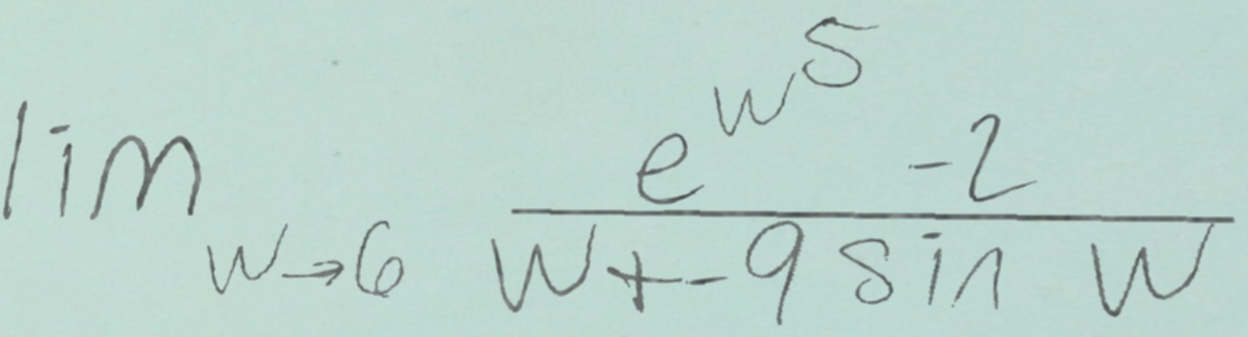 \lim_{w \to 6} \frac{e^{w^5} - 2}{w + -9 \sin w}